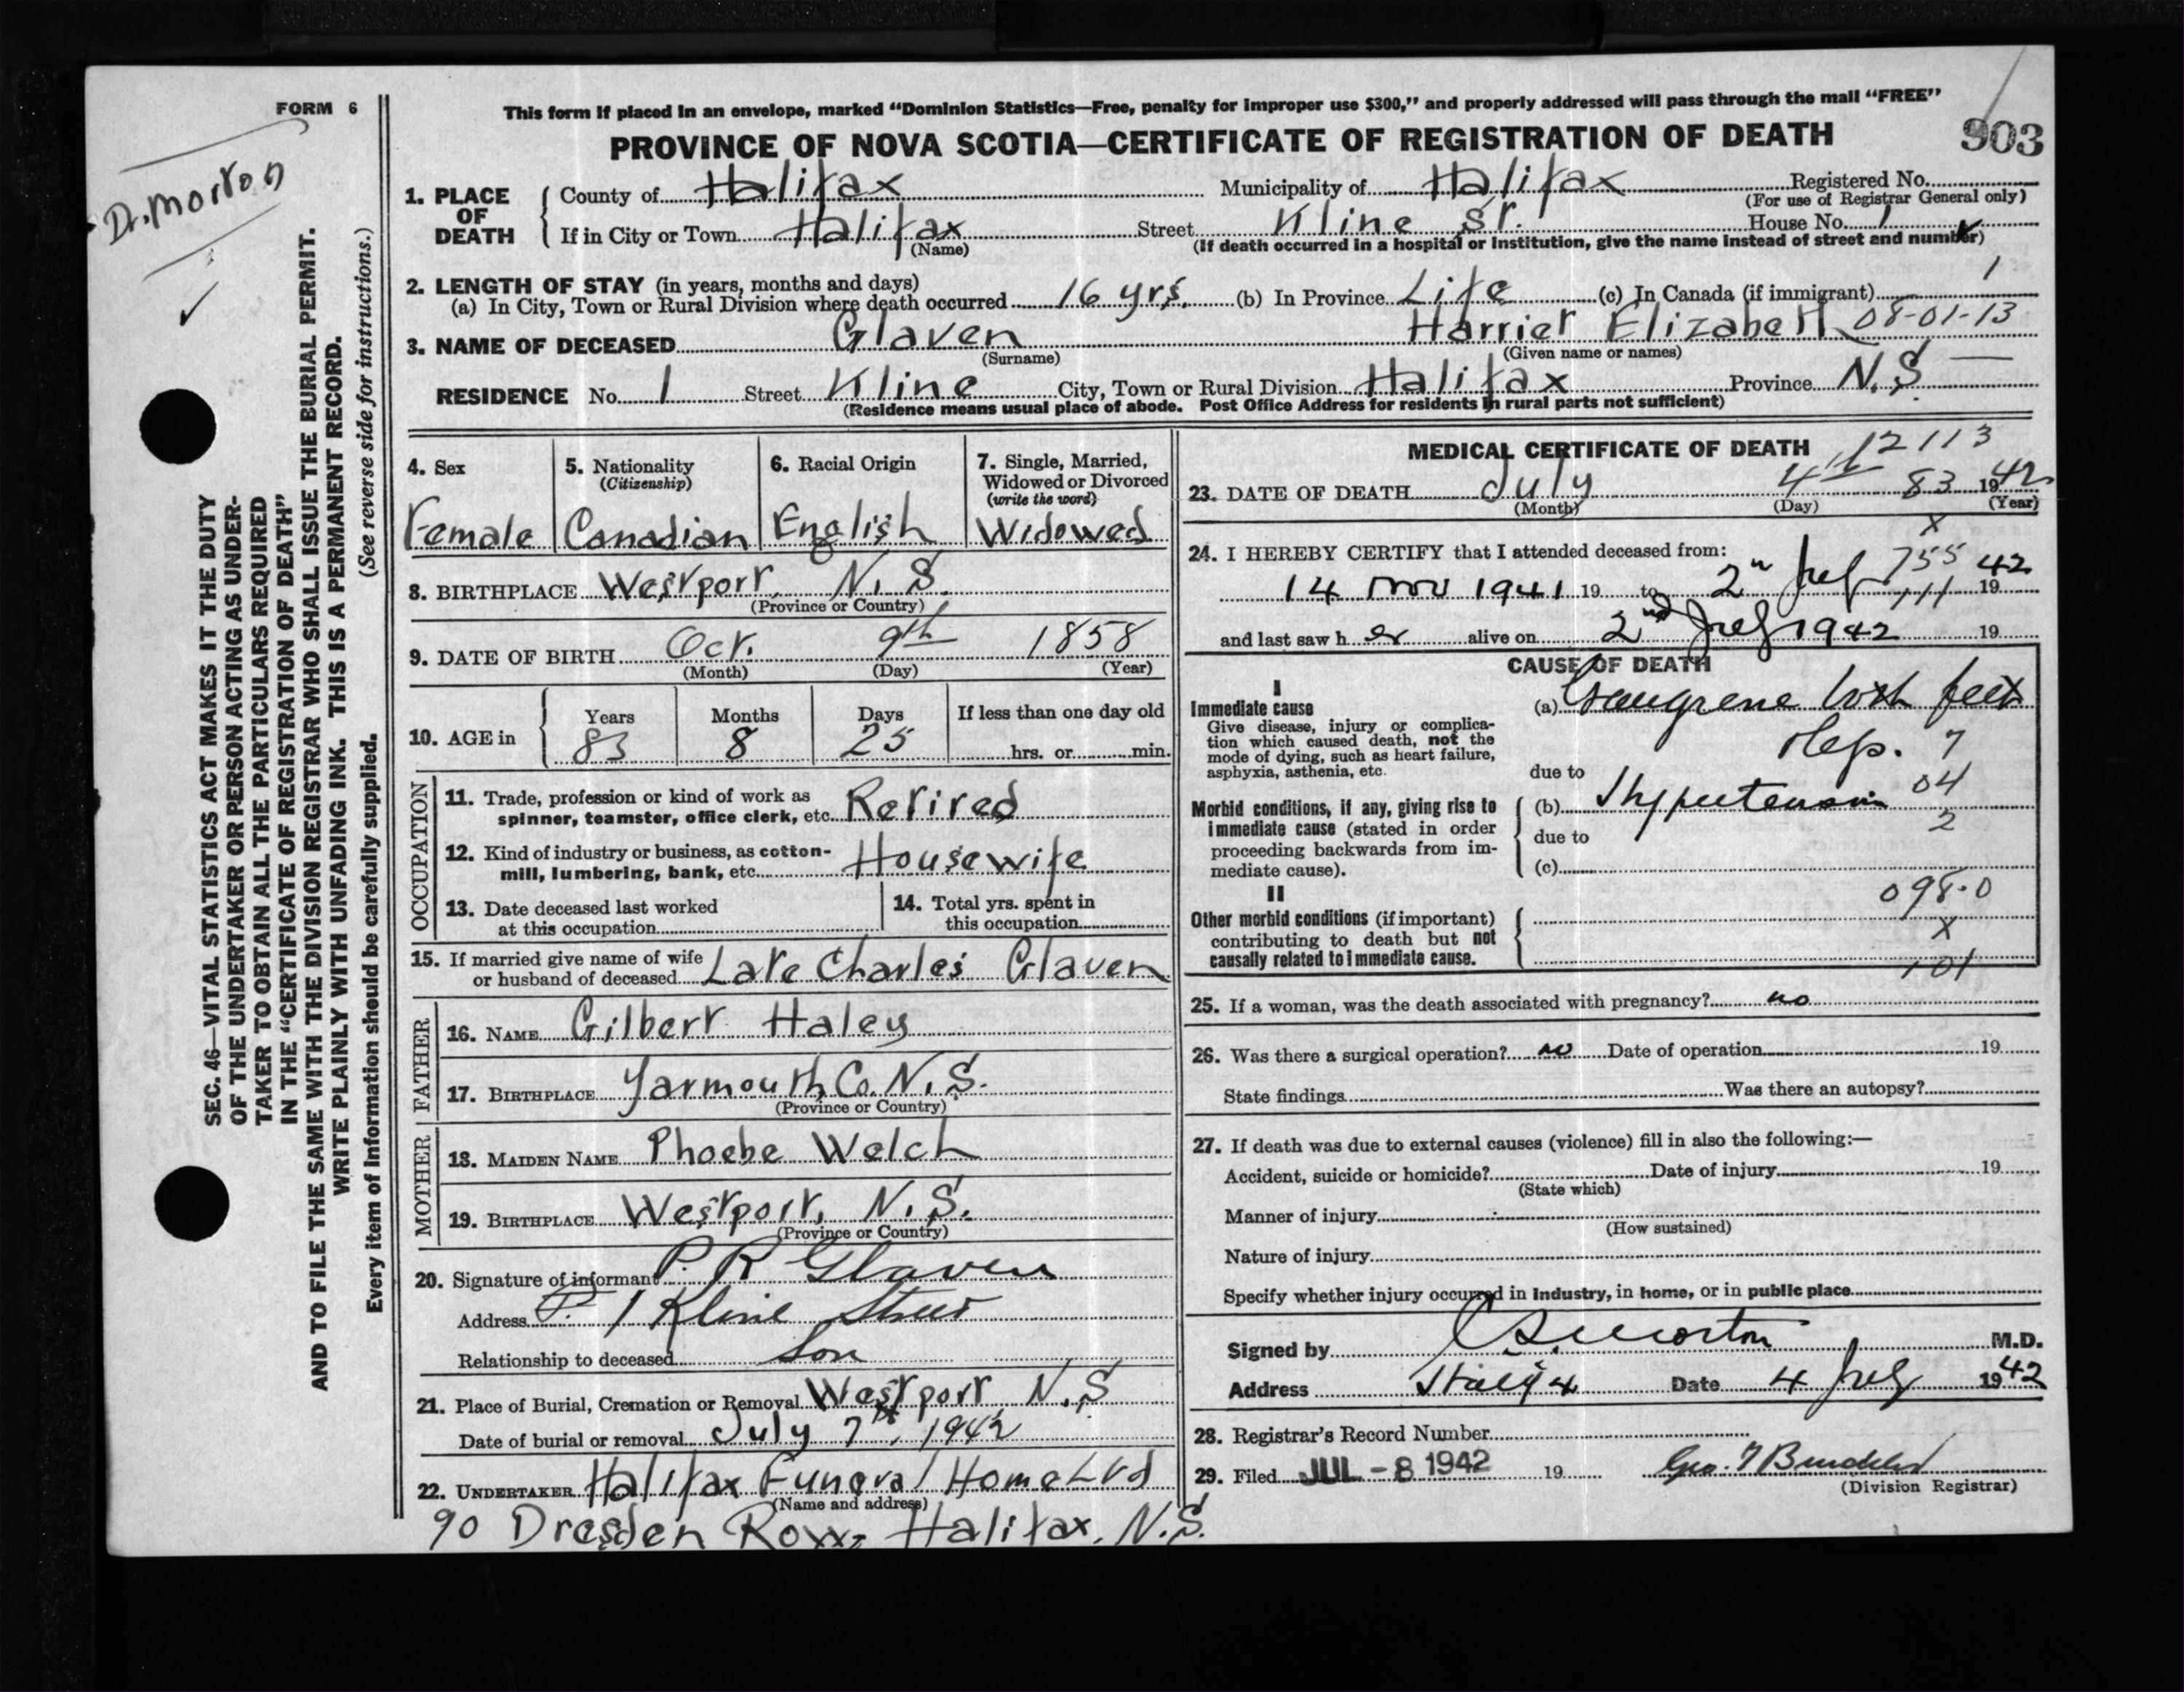 FORM 6
Dr. Morton
SEC. 46—VITAL STATISTICS ACT MAKES IT THE DUTY
OF THE UNDERTAKER OR PERSON ACTING AS UNDER-
TAKER TO OBTAIN ALL THE PARTICULARS REQUIRED
IN THE "CERTIFICATE OF REGISTRATION OF DEATH"
AND TO FILE THE SAME WITH THE DIVISION REGISTRAR WHO SHALL ISSUE THE BURIAL PERMIT.
WRITE PLAINLY WITH UNFADING INK. THIS IS A PERMANENT RECORD.
Every item of information should be carefully supplied. (See reverse side for instructions.)
This form if placed in an envelope, marked "Dominion Statistics—Free, penalty for improper use $300," and properly addressed will pass through the mail "FREE"
PROVINCE OF NOVA SCOTIA—CERTIFICATE OF REGISTRATION OF DEATH 903
1. PLACE OF DEATH County of Halifax Municipality of Halifax Registered No.
(For use of Registrar General only)
If in City or Town Halifax Street Kline St. House No. 1
(Name) (If death occurred in a hospital or institution, give the name instead of street and number)
2. LENGTH OF STAY (in years, months and days) 1
(a) In City, Town or Rural Division where death occurred 16 yrs. (b) In Province Life (c) In Canada (if immigrant)
3. NAME OF DECEASED Glaven Harriet Elizabeth 08-01-13
(Surname) (Given name or names)
RESIDENCE No. 1 Street Kline City, Town or Rural Division Halifax Province N.S.
(Residence means usual place of abode. Post Office Address for residents in rural parts not sufficient)
4. Sex Female
5. Nationality (Citizenship) Canadian
6. Racial Origin English
7. Single, Married, Widowed or Divorced (write the word) Widowed
8. BIRTHPLACE Westport, N.S.
(Province or Country)
9. DATE OF BIRTH Oct. 9th 1858
(Month) (Day) (Year)
10. AGE in Years 83 Months 8 Days 25 If less than one day old
hrs. or min.
OCCUPATION
11. Trade, profession or kind of work as
spinner, teamster, office clerk, etc. Retired
12. Kind of industry or business, as cotton-
mill, lumbering, bank, etc. Housewife
13. Date deceased last worked
at this occupation
14. Total yrs. spent in
this occupation
15. If married give name of wife
or husband of deceased Late Charles Glaven
FATHER
16. NAME Gilbert Haley
17. BIRTHPLACE Yarmouth, Co. N.S.
(Province or Country)
MOTHER
18. MAIDEN NAME Phoebe Welch
19. BIRTHPLACE Westport, N.S.
(Province or Country)
20. Signature of informant P. R Glaven
Address 1 Kline Street
Relationship to deceased Son
21. Place of Burial, Cremation or Removal Westport, N.S
Date of burial or removal July 7th, 1942
22. UNDERTAKER Halifax Funeral Home Ltd
(Name and address)
90 Dresden Row, Halifax, N.S.
MEDICAL CERTIFICATE OF DEATH 12113
23. DATE OF DEATH July 4th 83 1942
(Month) (Day) (Year)
x
24. I HEREBY CERTIFY that I attended deceased from: 755
14 Nov 1941 19 to 2nd July 42 19
111
and last saw her alive on 2nd July 1942 19
CAUSE OF DEATH
I
Immediate cause
Give disease, injury or complica-
tion which caused death, not the
mode of dying, such as heart failure,
asphyxia, asthenia, etc.
(a) Gangrene both feet
7
due to
Morbid conditions, if any, giving rise to
immediate cause (stated in order
proceeding backwards from im-
mediate cause).
(b) Hypertension 04
2
due to
(c)
II
Other morbid conditions (if important)
contributing to death but not
causally related to immediate cause.
098.0
x
101
25. If a woman, was the death associated with pregnancy? no
26. Was there a surgical operation? no Date of operation 19
State findings Was there an autopsy?
27. If death was due to external causes (violence) fill in also the following:—
Accident, suicide or homicide? Date of injury 19
(State which)
Manner of injury
(How sustained)
Nature of injury
Specify whether injury occurred in industry, in home, or in public place
Signed by Morton M.D.
Address Date 4 July 1942
28. Registrar's Record Number
29. Filed JUL -8 1942 19
(Division Registrar)